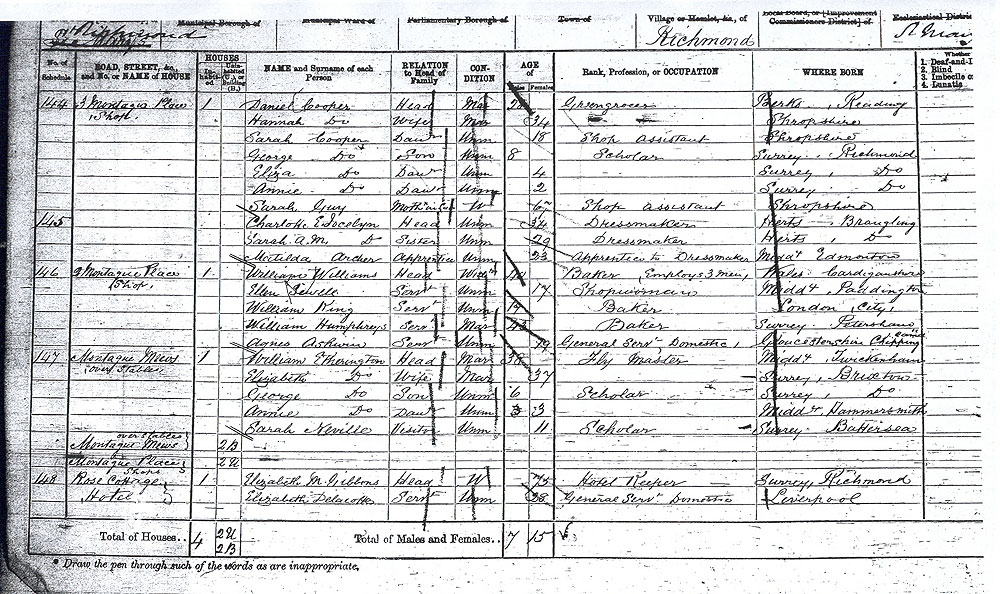 Municipal Borough of Municipal Ward of Parliamentary Borough of Town of Village or Hamlet, &c., of Local Board, or [Improvement Commissioners District] of Ecclesiastical Distri
Richmond Richmond
No. of Schedule ROAD, STREET, &c., and No. or NAME of HOUSE HOUSES Inhabited Uninhabited (U.) or (B.) NAME and Surname of each Person RELATION to Head of Family CONDITION AGE of Males Females Rank, Profession, or OCCUPATION WHERE BORN Whether 1. Deaf-and-D 2. Blind 3. Imbecile o 4. Lunatic
144 3 Montague Place 1 Daniel Cooper Head Mar Greengrocer Berks, Reading
Shop. Hannah Do Wife Mar 34 Shropshire
Sarah Cooper Daur Unm 18 Shop assistant Shropshire
George Do Son Unm 8 Scholar Surrey. Richmond
Eliza Do Daur Unm 4 Surrey, Do
Annie Do Daur Unm 2 Surrey Do
Sarah W 67 Shop assistant Shropshire
145 Charlotte E Jocelyn Head Unm 34 Dressmaker Herts, Braughing
Sarah A.M. Do Sister Unm 29 Dressmaker Herts, Do
Matilda Archer Apprentice Unm 23 Apprentice to Dressmaker Middx Edmonton
146 2 Montague Place 1 William Williams Head Widr Baker Employs 3 men, Wales. Cardiganshire
Shop. Ellen Jewell Servt Unm 17 Shopwoman Middx, Paddington
William King Servt Unm 19 Baker London, City,
William Humphreys Servt Mar 43 Baker Surrey. Petersham
Agnes Servt Unm 19 General Servt Domestic, Gloucestershire Chipping
147 Montague Mews 1 William Etherington Head Mar 38 Fly Master Middx, Twickenham
over Stables Elizabeth Do Wife Mar 37 Surrey, Brixton
George Do Son Unm 6 Scholar Surrey, Do
Annie Do Daur Unm 3 Middx, Hammersmith
Sarah Neville Visitor Unm 11 Scholar Surrey. Battersea
over Stables
Montague Mews 2B
Montague Place 2U
Shops
148 Rose Cottage 1 Elizabeth M. Gibbons Head W 75 Hotel Keeper Surrey, Richmond
Hotel Elizabeth Servt Unm 28 General Servt Domestic Liverpool
Total of Houses.. 4 2U 2B Total of Males and Females.. 7 15
* Draw the pen through such of the words as are inappropriate.